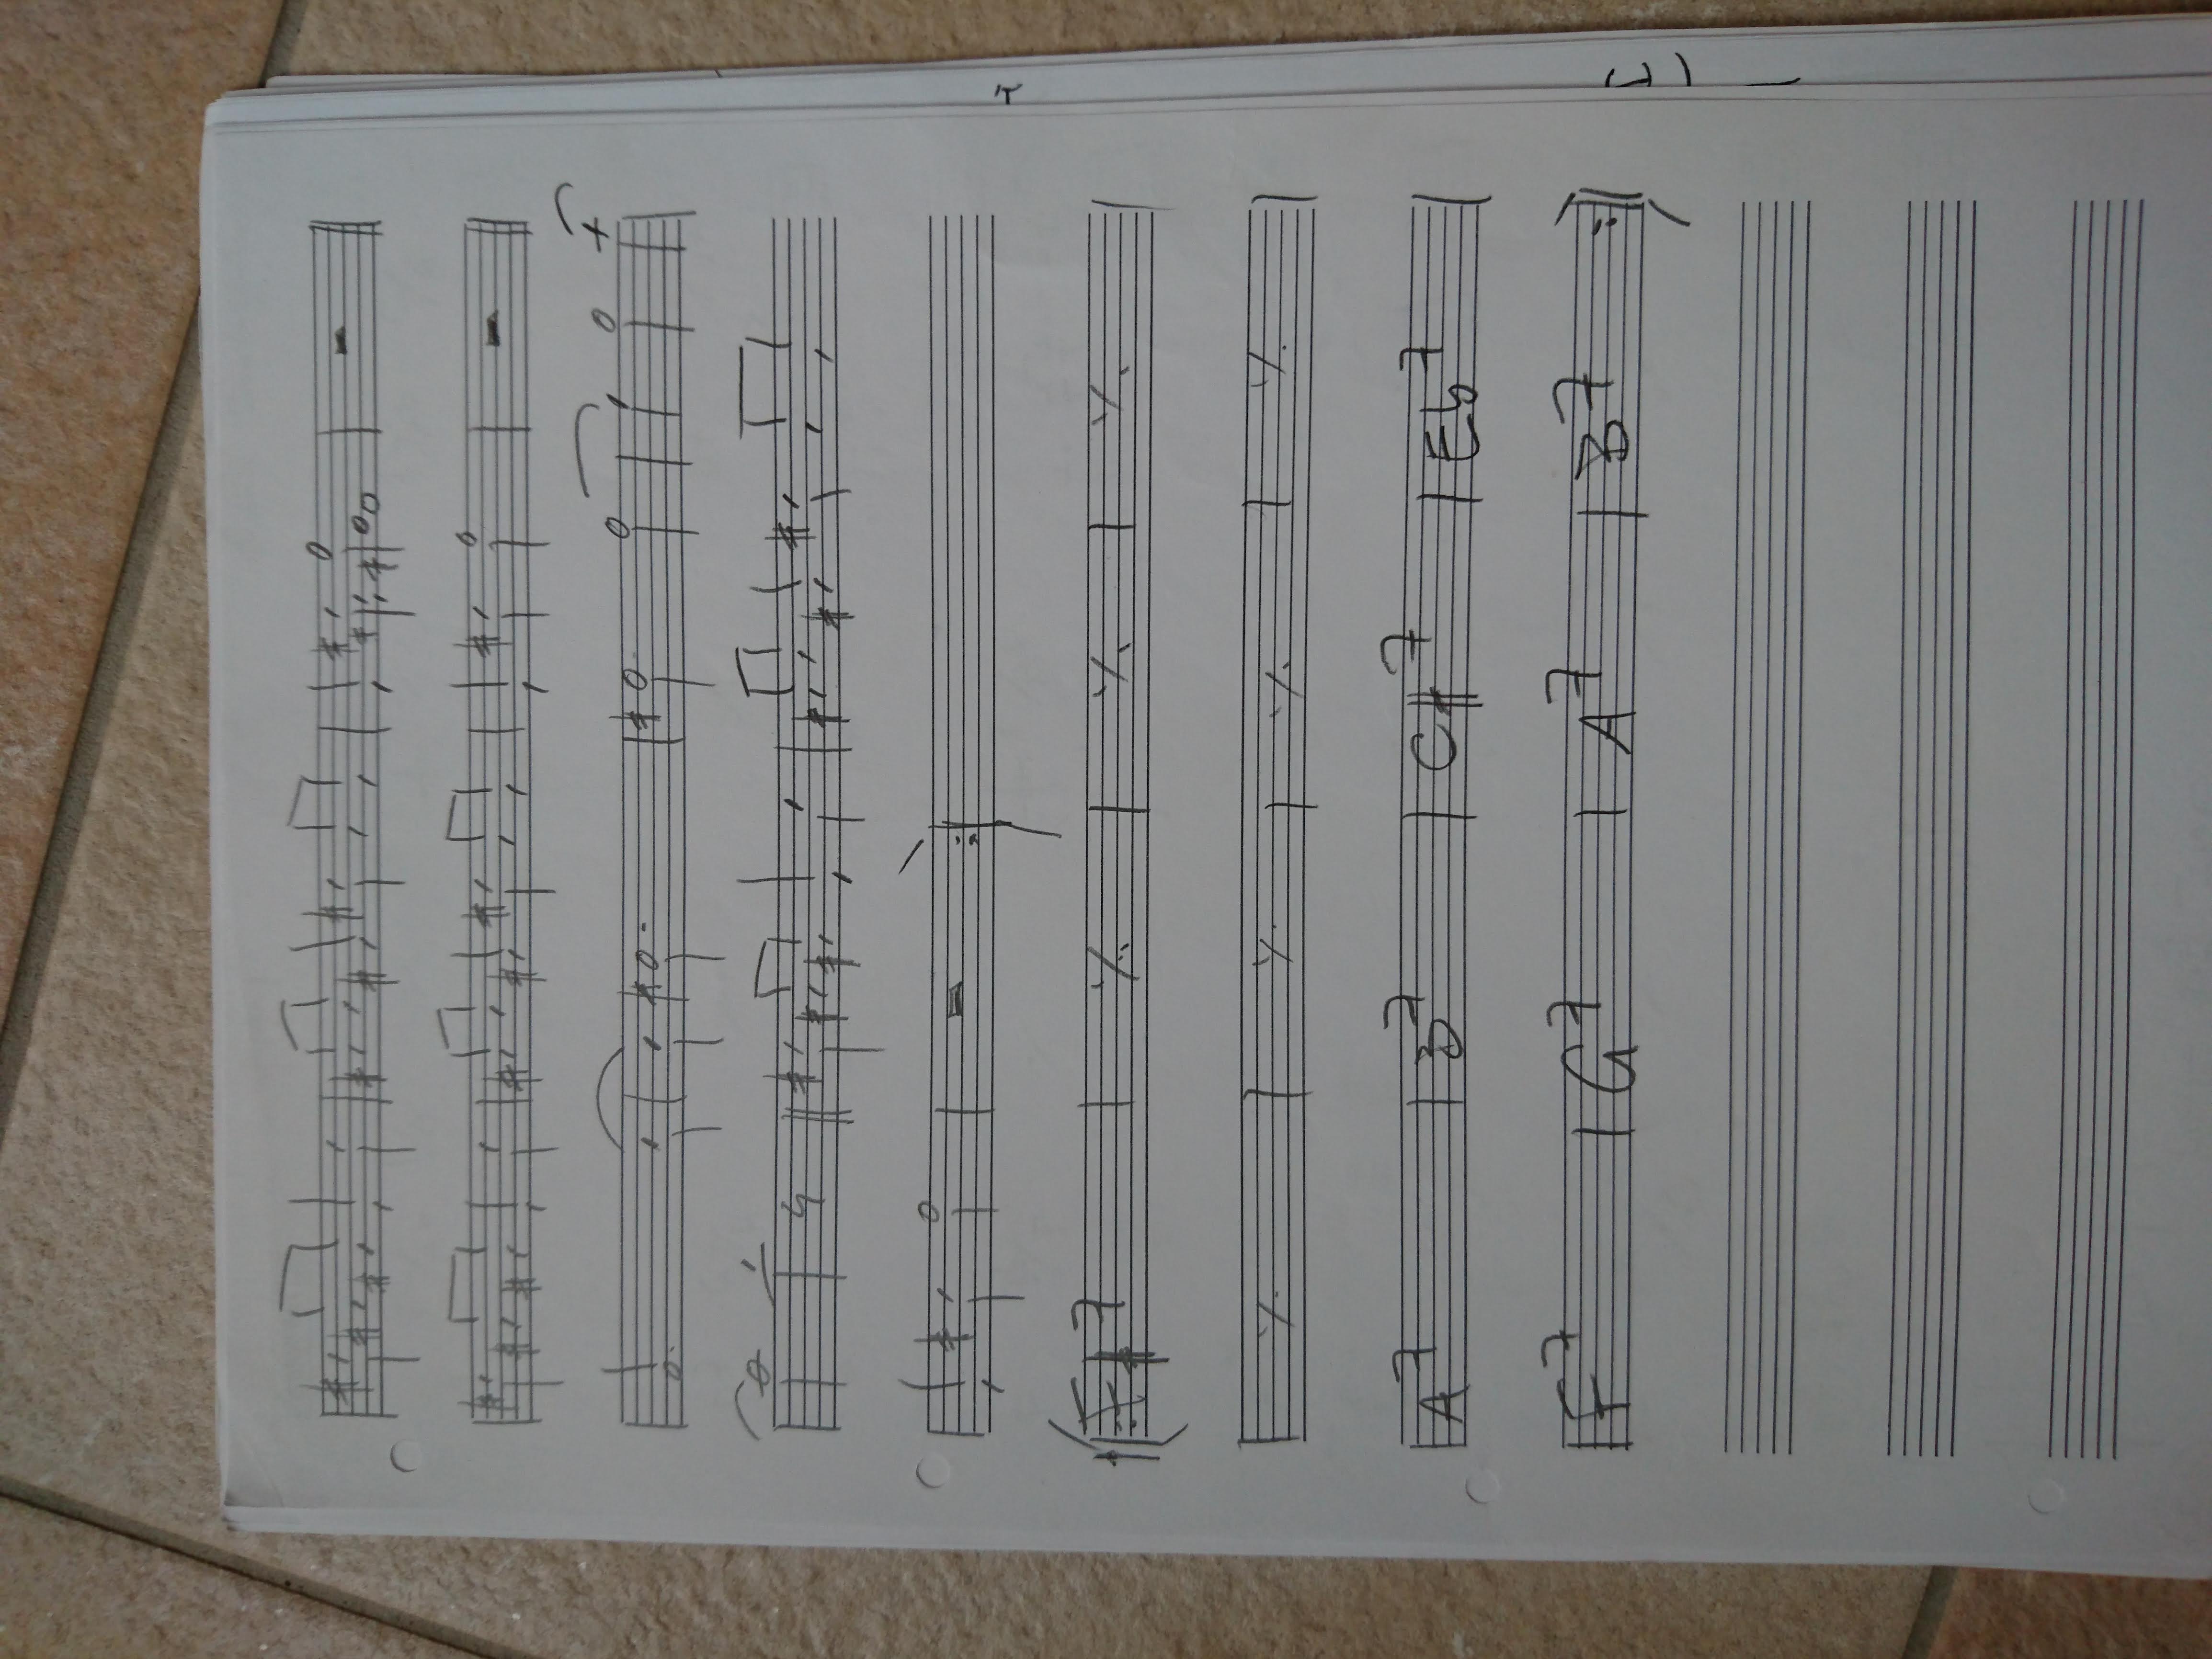 F#7 ٪ ٪ ٪
٪ ٪ ٪ ٪
A7 | B7 | C#7 | Eb7
F7 | G7 | A7 | B7